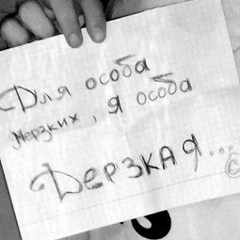 Для особа
мерзких, я особа
Дерзкая...
©